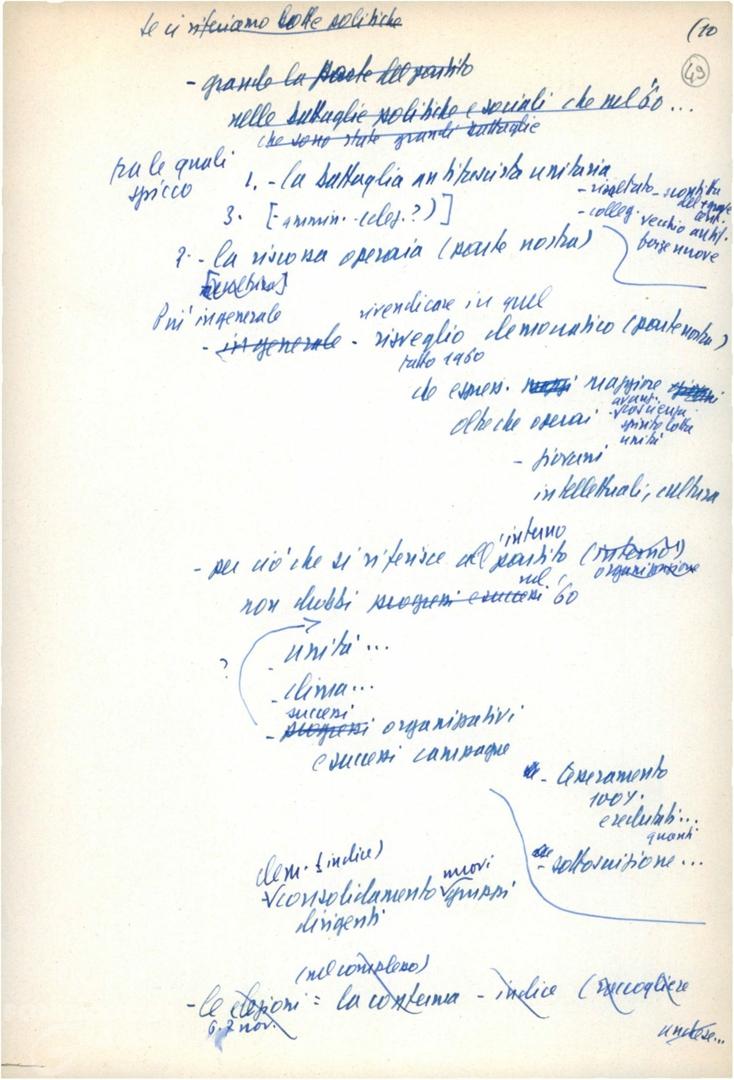 se ci riferiamo lotte politiche
(10
49
- grande la parte del partito
nelle battaglie politiche e sociali che nel '60...
che sono state grandi battaglie
tra le quali
spicco
1. - la battaglia antifascista unitaria
- risultato - sconfitta
del
- colleg. vecchio antif.
forze nuove
3. [- ammin. (eles.?)]
2 - la riscossa operaia (parte nostra)
Più in generale rivendicare in quel
- in generale - risveglio democratico (parte nostra)
tutto 1960
che espress. maggiore
avanz.
coscienza
oltre che operai
spirito lotta
unità
- giovani
intellettuali, cultura
interno
- per ciò che si riferisce al partito (interno)
organizzazione
nel
non dubbi progressi e successi '60
- unità...
?
- clima...
successi
- progressi organizzativi
e successi campagne
- tesseramento
100%
reclutati...
quanti
- sottoscrizione...
dem. (indice)
nuovi
consolidamento gruppi
dirigenti
(nel complesso)
- le elezioni = la conferma - indice (raccogliere
6-7 nov.